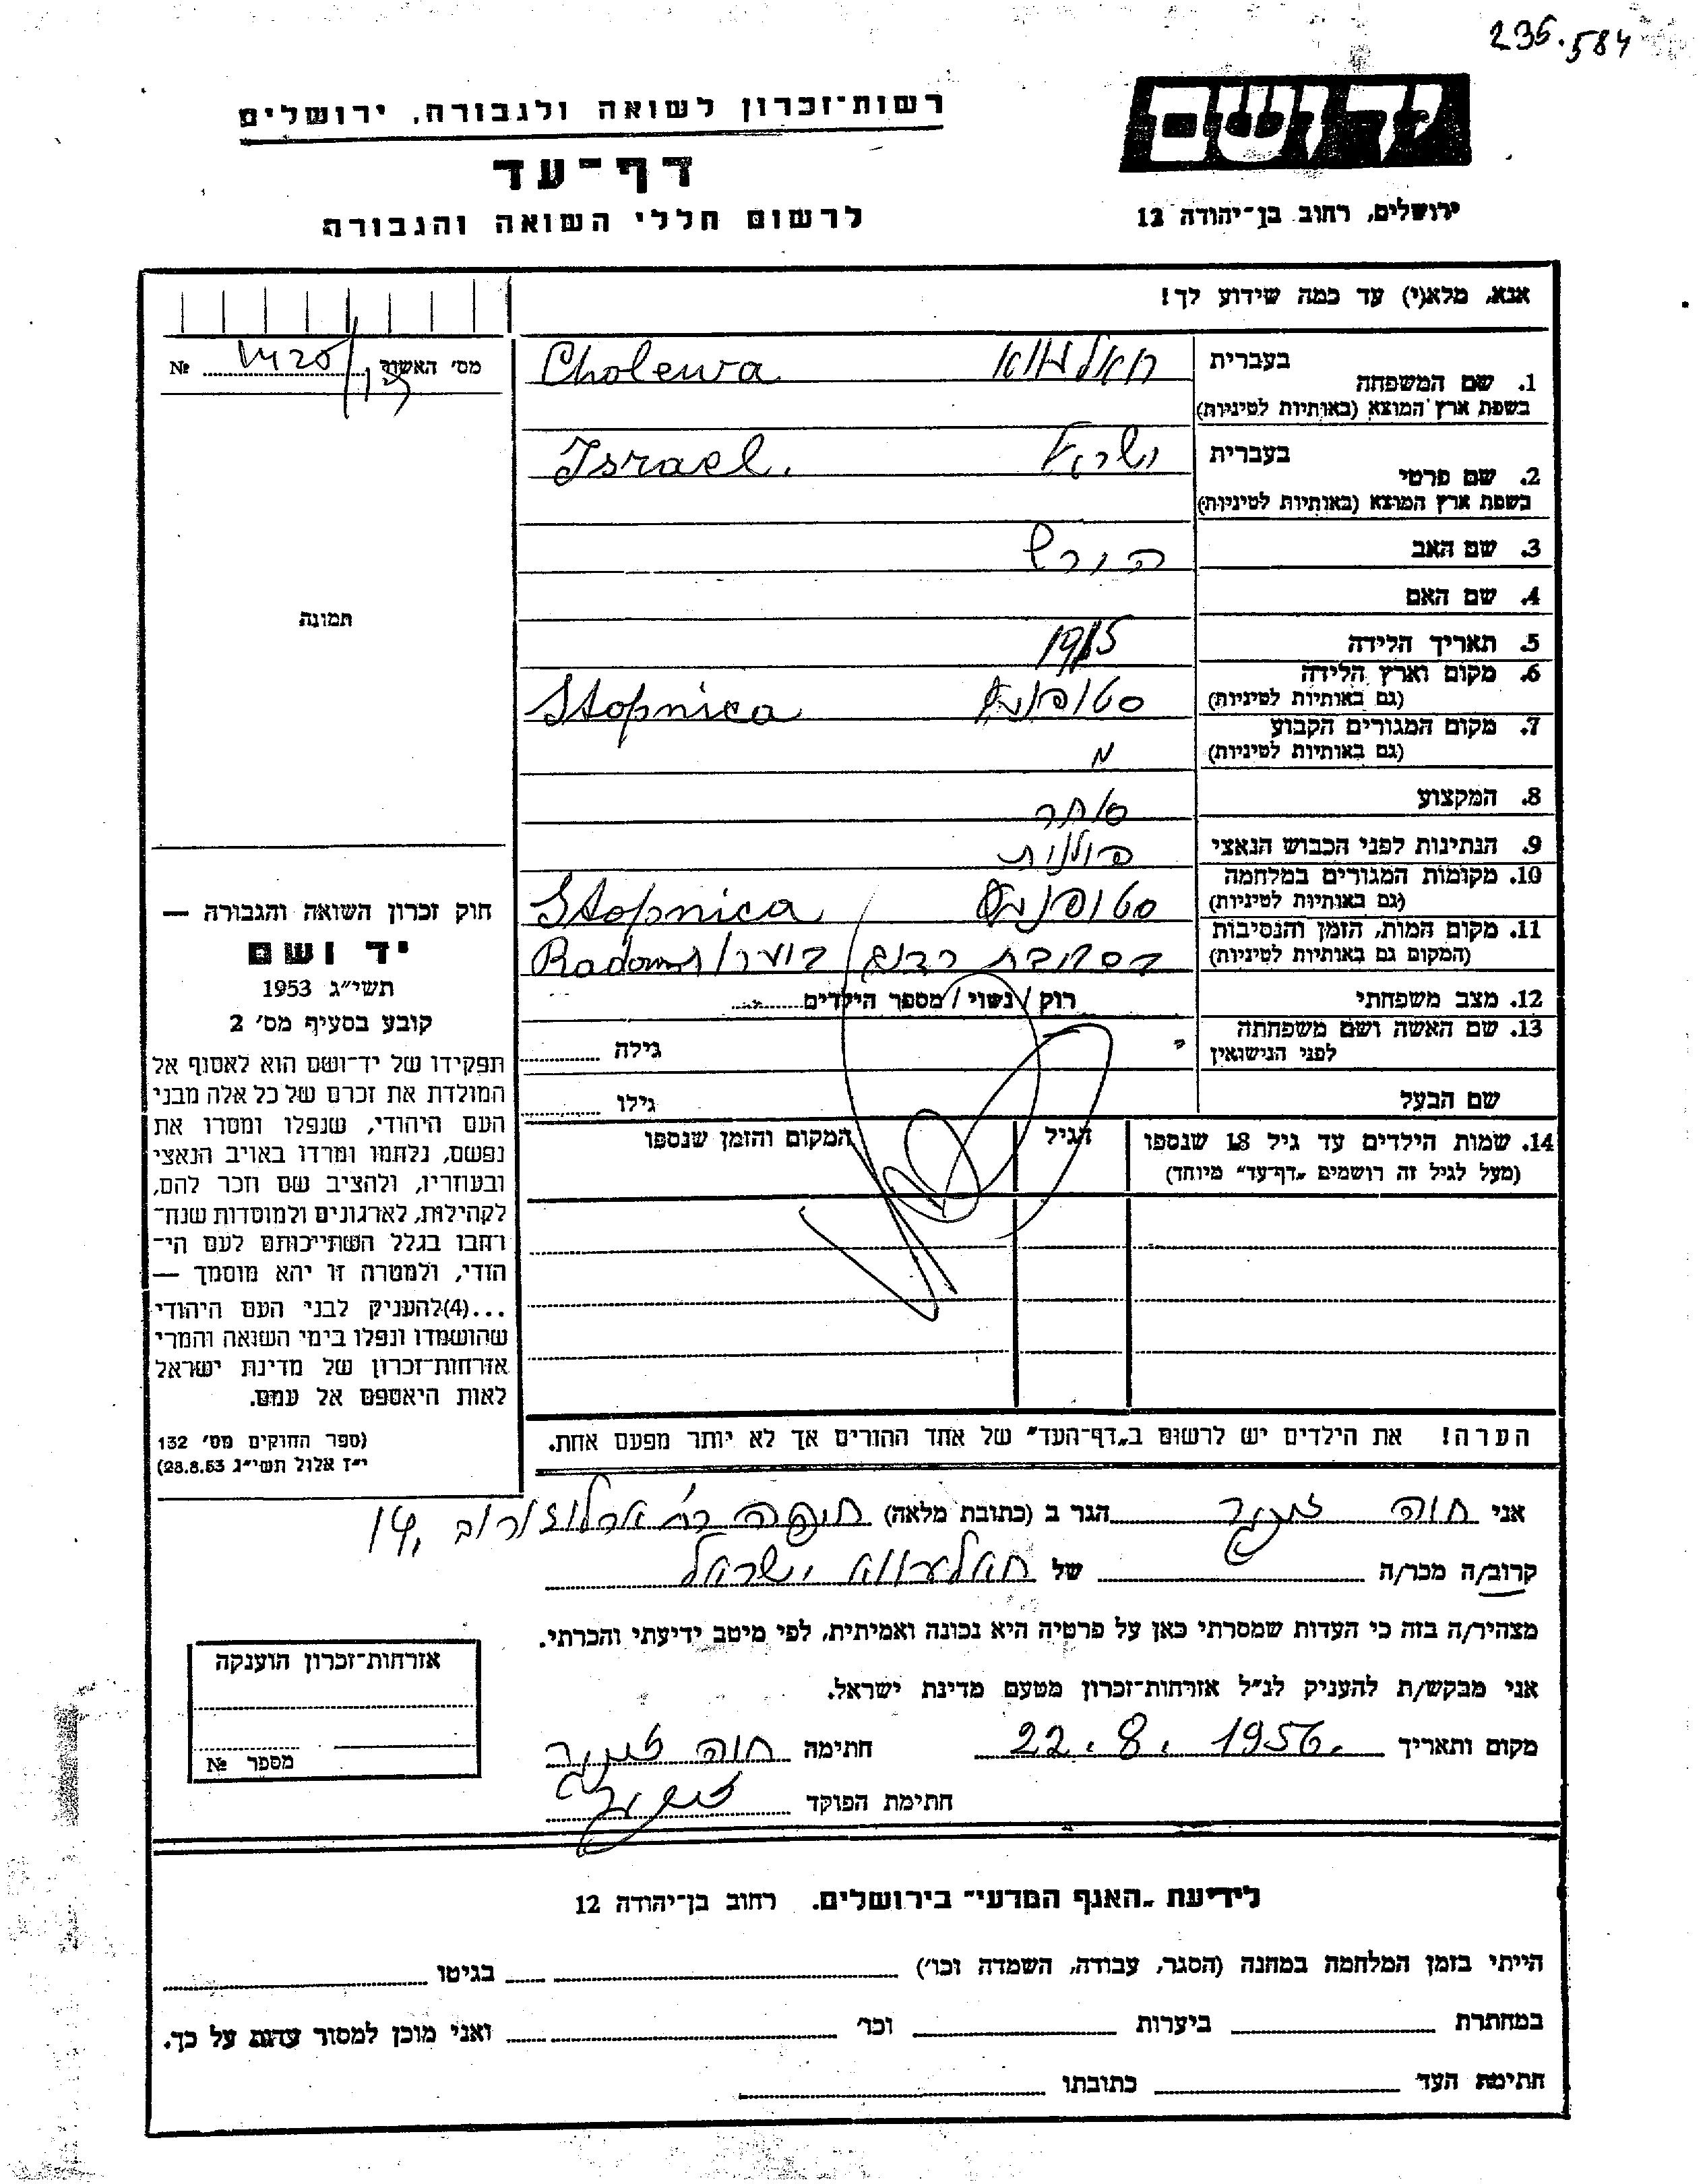 236.584
יד ושם
רשות־זכרון לשואה ולגבורה, ירושלים
דף־עד
לרשום חללי השואה והגבורה
ירושלים, רחוב בן־יהודה 12
אנא, מלא(י) עד כמה שידוע לך!
מס' האשור № 1420
בעברית
1. שם המשפחה
בשפת ארץ המוצא (באותיות לטיניות)
Cholewa
בעברית
2. שם פרטי
בשפת ארץ המוצא (באותיות לטיניות)
ישראל Israel.
3. שם האב הירש
4. שם האם
5. תאריך הלידה 1915
6. מקום וארץ הלידה
(גם באותיות לטיניות)
Stopnica
7. מקום המגורים הקבוע
(גם באותיות לטיניות)
8. המקצוע סוחר
9. הנתינות לפני הכבוש הנאצי פולנית
10. מקומות המגורים במלחמה
(גם באותיות לטיניות)
Stopnica
11. מקום המות, הזמן והנסיבות
(המקום גם באותיות לטיניות)
בסביבת Radom
12. מצב משפחתי רוק / נשוי / מספר הילדים
13. שם האשה ושם משפחתה
לפני הנישואין
גילה
שם הבעל גילו
14. שמות הילדים עד גיל 18 שנספו
(מעל לגיל זה רושמים „דף־עד" מיוחד)
הגיל
המקום והזמן שנספו
הערה! את הילדים יש לרשום ב„דף־העד" של אחד ההורים אך לא יותר מפעם אחת.
תמונה
חוק זכרון השואה והגבורה —
יד ושם
תשי"ג 1953
קובע בסעיף מס' 2
תפקידו של יד־ושם הוא לאסוף אל
המולדת את זכרם של כל אלה מבני
העם היהודי, שנפלו ומסרו את
נפשם, נלחמו ומרדו באויב הנאצי
ובעוזריו, ולהציב שם וזכר להם,
לקהילות, לארגונים ולמוסדות שנח־
רבו בגלל השתייכותם לעם הי־
הודי, ולמטרה זו יהא מוסמך —
...(4)להעניק לבני העם היהודי
שהושמדו ונפלו בימי השואה והמרי
אזרחות־זכרון של מדינת ישראל
לאות היאספם אל עמם.
(ספר החוקים מס' 132
י"ז אלול תשי"ג 28.8.53)
אני חוה הגר ב (כתובת מלאה) חיפה רח' ארלוזורוב 14,
קרוב/ה מכר/ה של חאלעווא ישראל
מצהיר/ה בזה כי העדות שמסרתי כאן על פרטיה היא נכונה ואמיתית, לפי מיטב ידיעתי והכרתי.
אני מבקש/ת להעניק לנ"ל אזרחות־זכרון מטעם מדינת ישראל.
מקום ותאריך 22.8.1956. חתימה חוה
חתימת הפוקד
אזרחות־זכרון הוענקה
מספר №
לידיעת „האגף המדעי" בירושלים. רחוב בן־יהודה 12
הייתי בזמן המלחמה במחנה (הסגר, עבודה, השמדה וכו') בגיטו
במחתרת ביערות וכו' ואני מוכן למסור עדות על כך.
חתימת העד כתובתו